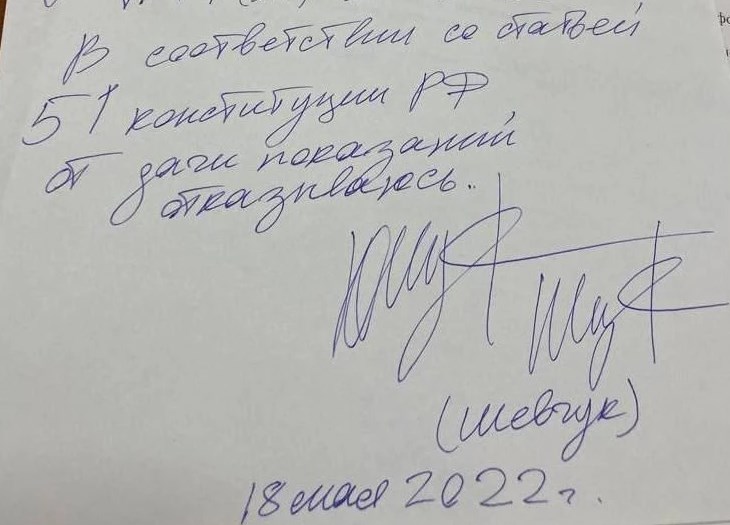 В соответствии со статьей
51 конституции РФ
от дачи показаний
отказываюсь.
(Шевчук)
18 мая 2022 г.